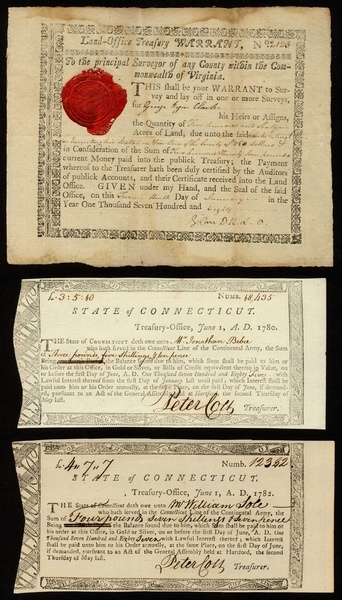 Land-Office Treasury WARRANT, N
To the principal Surveyor of any County within the Com-
monwealth of Virginia.
THIS shall be your WARRANT to Sur-
vey and lay off in one or more Surveys,
for George Rogers Clark his Heirs or Assigns,
the Quantity of
Acres of Land, due unto the said
in Consideration of the Sum of
current Money paid into the publick Treasury; the Payment
whereof to the Treasurer hath been duly certified by the Auditors
of publick Accounts, and their Certificate received into the Land
Office. GIVEN under my Hand, and the Seal of the said
Office, on this Day of in the
Year One Thousand Seven Hundred and Eighty
L. 3:5:10 NUMB. 18,435
STATE of CONNECTICUT.
Treasury-Office, June 1, A. D. 1780.
THE State of CONNECTICUT doth owe unto Mr. Jonathan Beebe
who hath served in the Connecticut Line of the Continental Army, the Sum
of Three pounds, five Shillings & ten pence
Being the Balance found due to him, which Sum shall be paid to him or
his Order at this Office, in Gold or Silver, or Bills of Credit equivalent thereto in Value, on
or before the first Day of June, A. D. One Thousand Seven Hundred and Eighty Five with
Lawful Interest thereof from the first Day of January last until paid; which Interest shall be
paid unto him or his Order annually, at the same Place, on the first Day of June, if demand-
ed, pursuant to an Act of the General Assembly at Hartford, the second Thursday of
May last.
Peter Colt Treasurer.
L. 4:7:7 Numb. 12352
STATE of CONNECTICUT.
Treasury-Office, June 1, A. D. 1782.
THE State of Connecticut doth owe unto Mr William
who hath served in the Connecticut Line of the Continental Army, the
Sum of Four pounds Seven Shillings & Seven pence
Being the Balance found due to him, which Sum shall be paid to him or his
Order, at this Office, in Gold or Silver, on or before the first Day of June, A. D. One
Thousand Seven Hundred and Eighty Seven with Lawful Interest thereof; which Interest
shall be paid unto him or his Order annually, at the same Place, on the first Day of June, if
demanded, pursuant to an Act of the General Assembly held at Hartford, the second
Thursday of May last.
Peter Colt Treasurer.